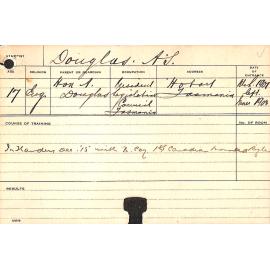 STARTED
Douglas. A.S.
AGE RELIGION PARENT OR GUARDIAN OCCUPATION ADDRESS DATE OF ENTRANCE
17 Eng. Hon A. Douglas President Legislative Council Tasmania Hobart Tasmania Left June
COURSE OF TRAINING NO. OF ROOM
In Flanders Dec. '15 with B. Coy 1st Canadian Mounted Rifles
RESULTS
DIED